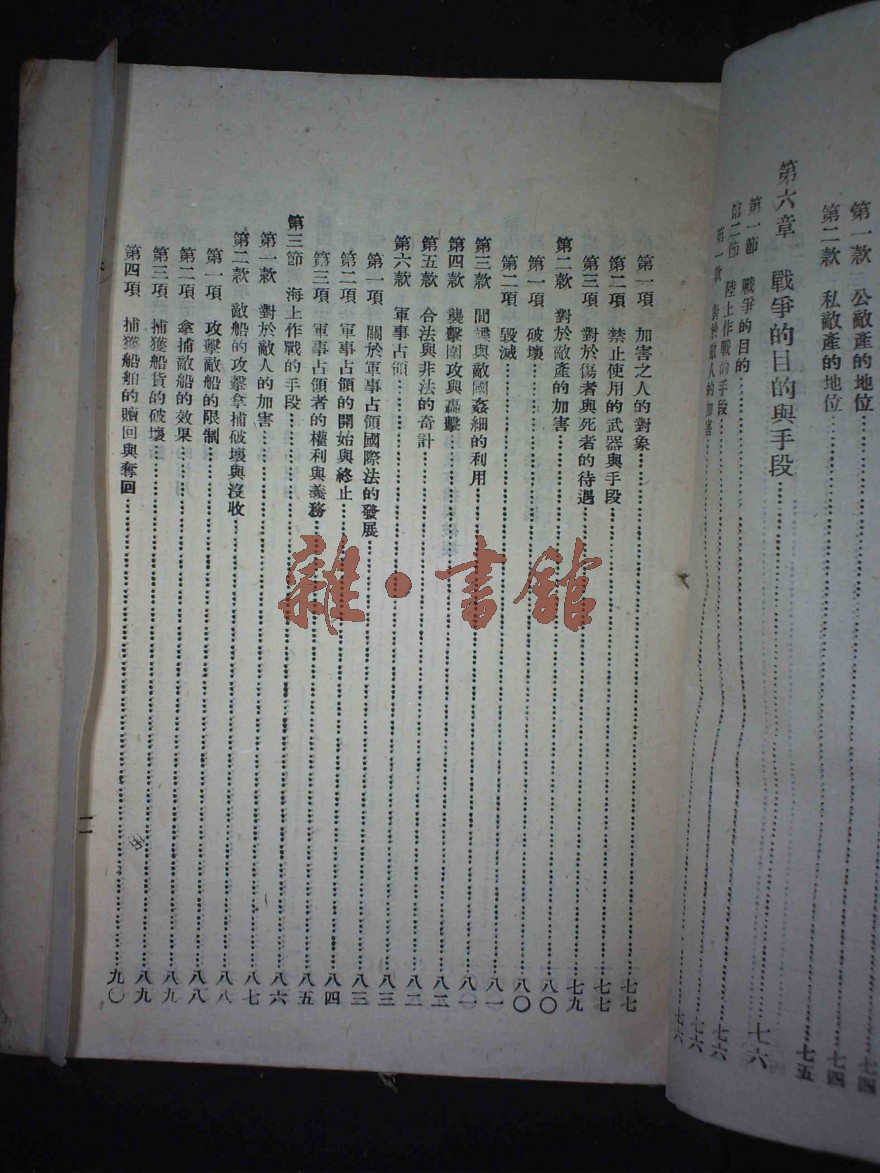 第一款 公敵產的地位……七四
第二款 私敵產的地位……七四
七五
第六章 戰爭的目的與手段……七六
第一節 戰爭的目的……七六
第二節 陸上作戰的手段……七六
第一款 對於敵人的加害……七六
第一項 加害之人的對象……七七
第二項 禁止使用的武器與手段……七七
第三項 對於傷者與死者的待遇……七九
第二款 對於敵產的加害……八〇
第一項 破壞……八〇
第二項 毀滅……八一
第三款 間諜與敵國姦細的利用……八一
第四款 襲擊圍攻與轟擊……八二
第五款 合法與非法的奇計……八二
第六款 軍事占領……八三
第一項 關於軍事占領國際法的發展……八三
第二項 軍事占領的開始與終止……八四
第三項 軍事占領者的權利與義務……八五
第三節 海上作戰的手段……八六
第一款 對於敵人的加害……八七
第二款 敵船的攻擊拿捕破壞與沒收……八八
第一項 攻擊敵船的限制……八八
第二項 拿捕敵船的效果……八九
第三項 捕獲船貨的破壞……八九
第四項 捕獲船舶的贖回與奪回……九〇
雜·書館